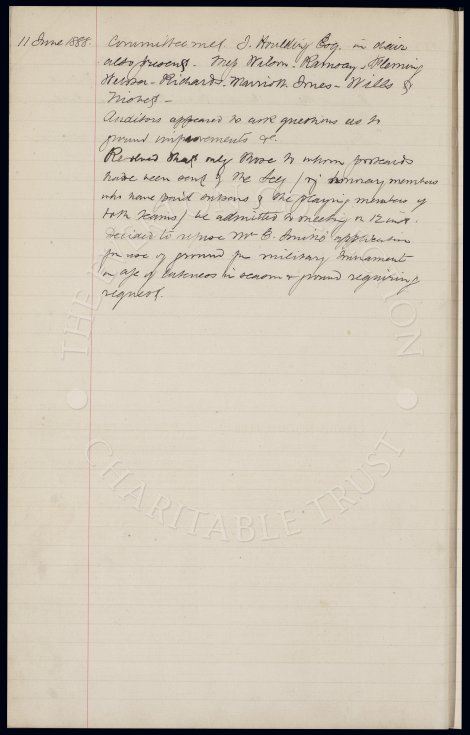 11 June 1888. Committee met J. Houlding Esq. in chair
also present. Mess Wilson - Ramsay - Fleming
Webster - Richards, Marriott Jones - Wills &
Nisbet -
Auditors appeared to ask questions as to
ground improvements &c.
Resolved that only those to whom postcards
have been sent by the Secy / viz honorary members
who have paid subsons & the playing members of
both teams / be admitted to meeting on 12 inst.
Decided to refuse Mr E. Smith's application
for use of ground for military tournament
on a/c of lateness in season & ground requiring
request.
THE
TION
CHARITABLE TRUST